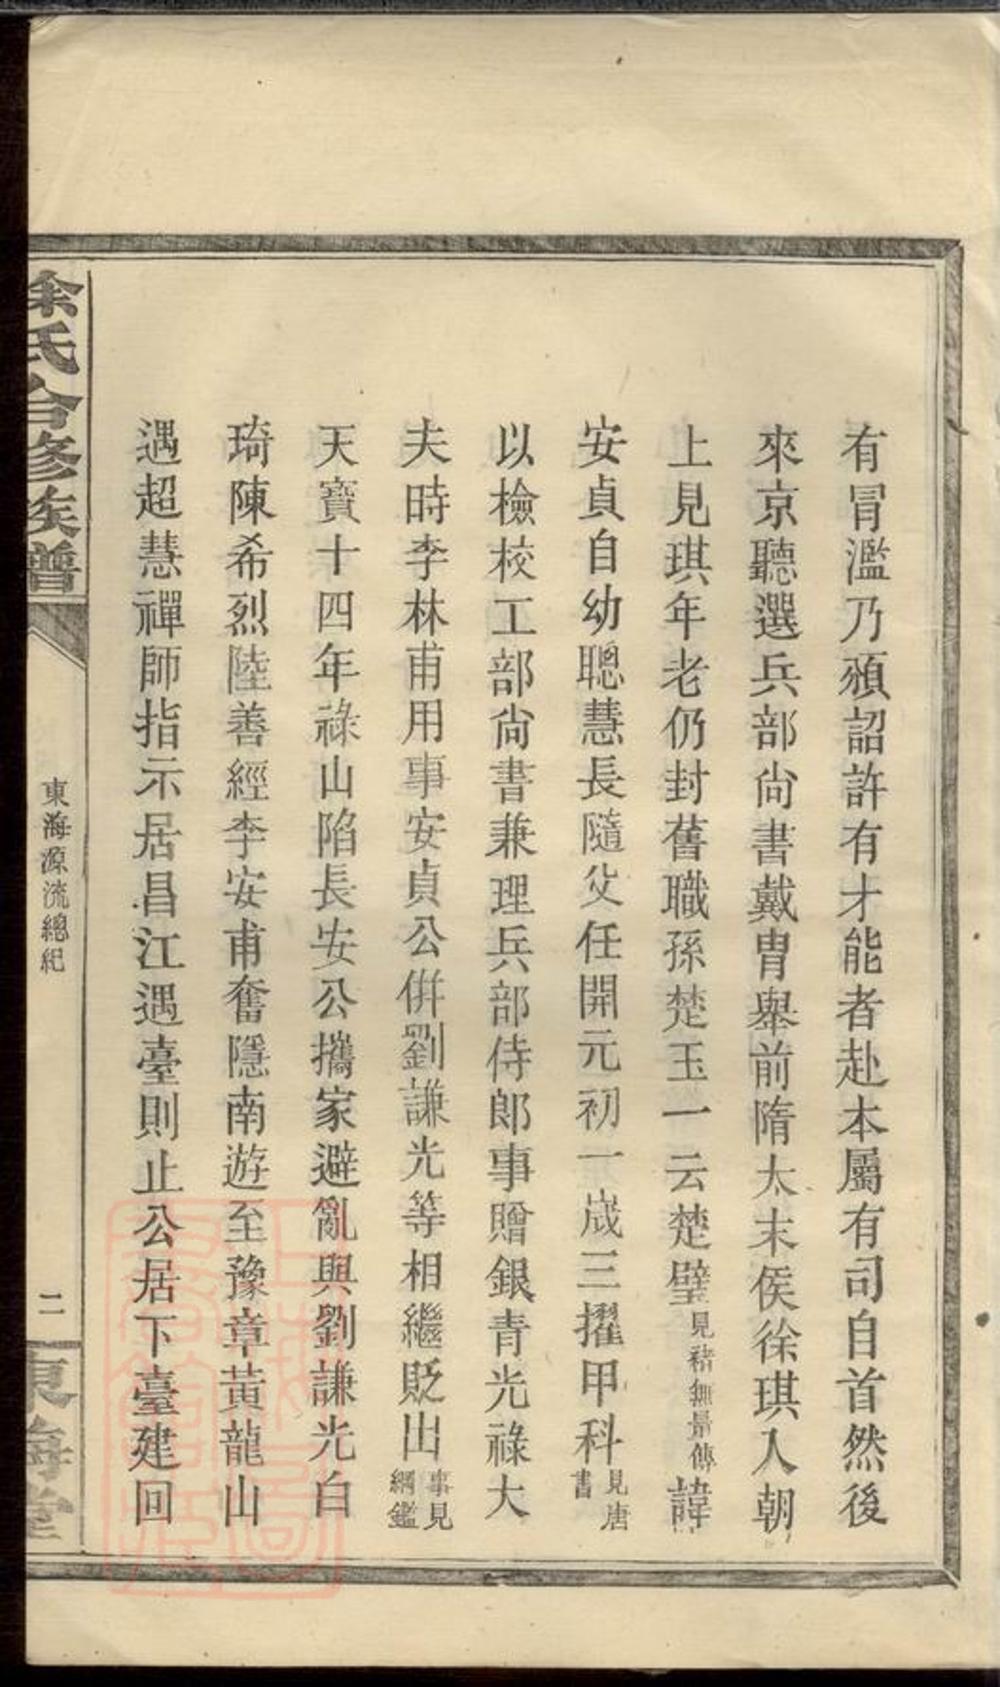 有冒濫乃頒詔許有才能者赴本屬有司自首然後
來京聽選兵部尚書戴冑舉前隋太末侯徐琪入朝
上見琪年老仍封舊職孫楚玉一云楚璧見褚無量傳諱
安貞自幼聰慧長隨父任開元初一歲三擢甲科見唐書
以檢校工部尚書兼理兵部侍郎事贈銀青光祿大
夫時李林甫用事安貞公併劉謙光等相繼貶出事見綱鑑
天寶十四年祿山陷長安公攜家避亂與劉謙光白
琦陳希烈陸善經李安甫奮隱南遊至豫章黃龍山
遇超慧禪師指示居昌江遇臺則止公居下臺建回
徐氏合修族譜
東海源流總紀
二
東海堂